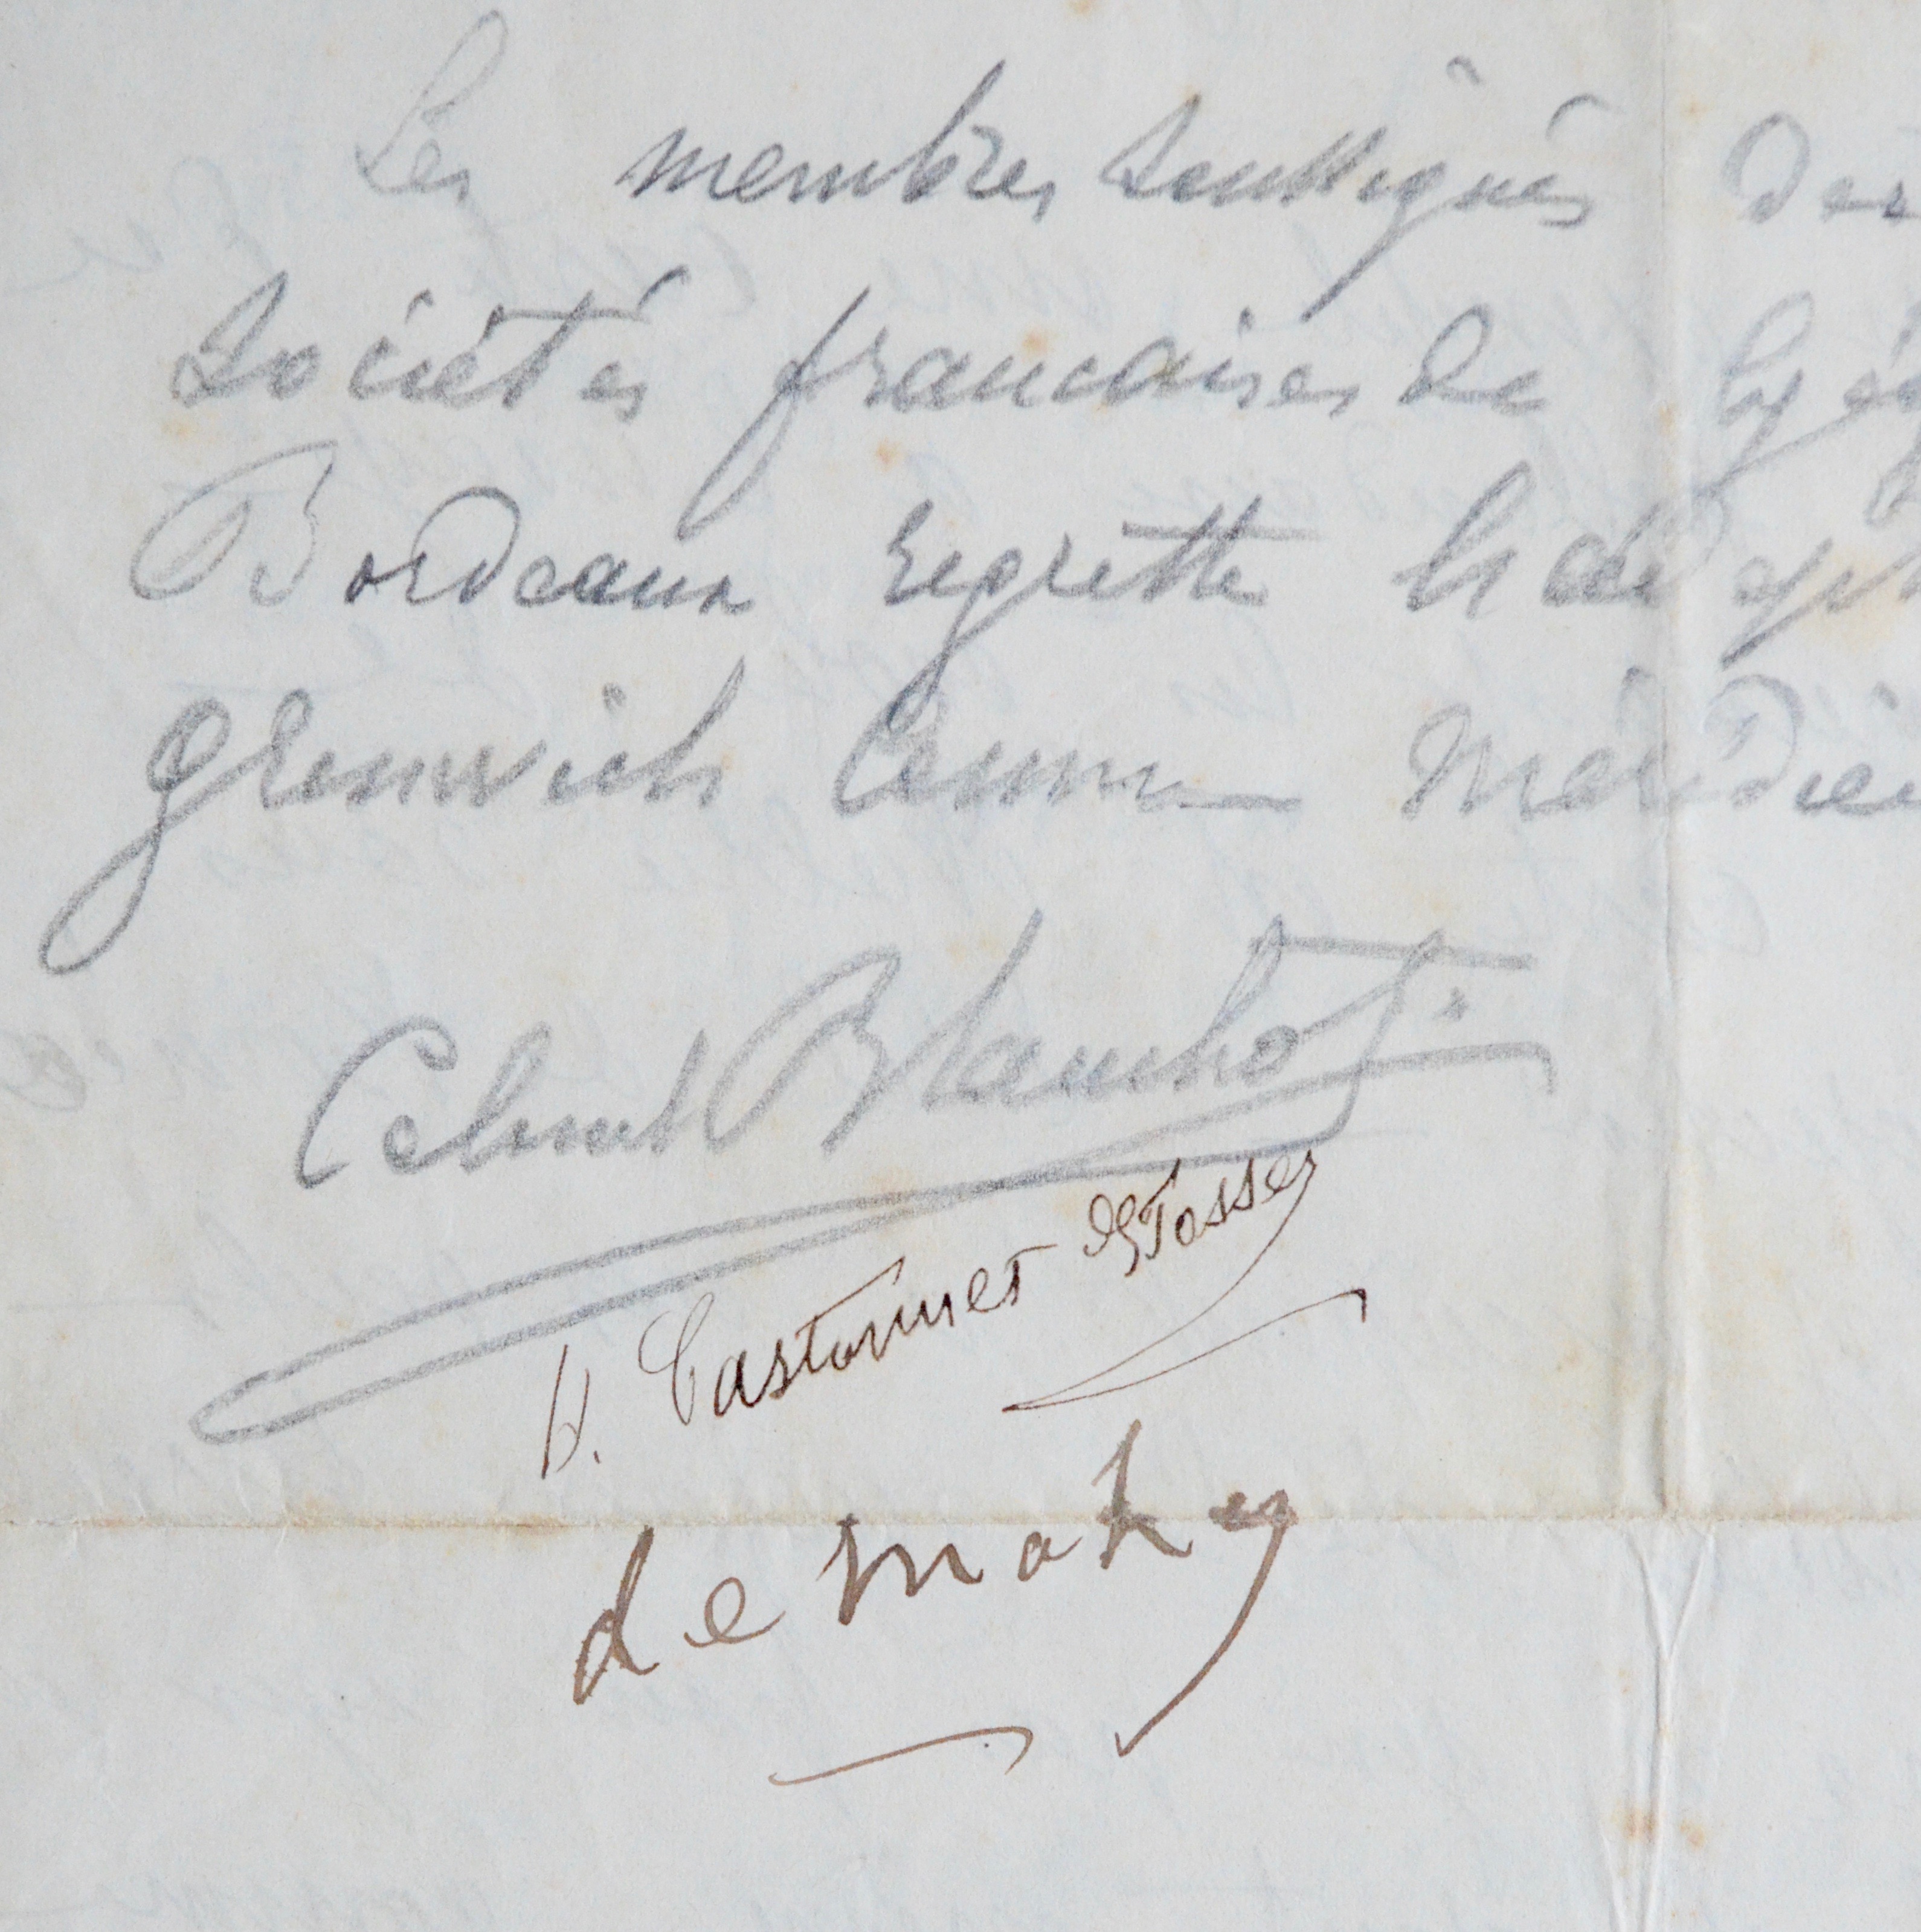 Les membres soussignés des
Sociétés francaises de
Bordeaux regrette
Greenwich comme Méridien
Colonel Blanchot
H. Castonnet des Fosses
de mahy